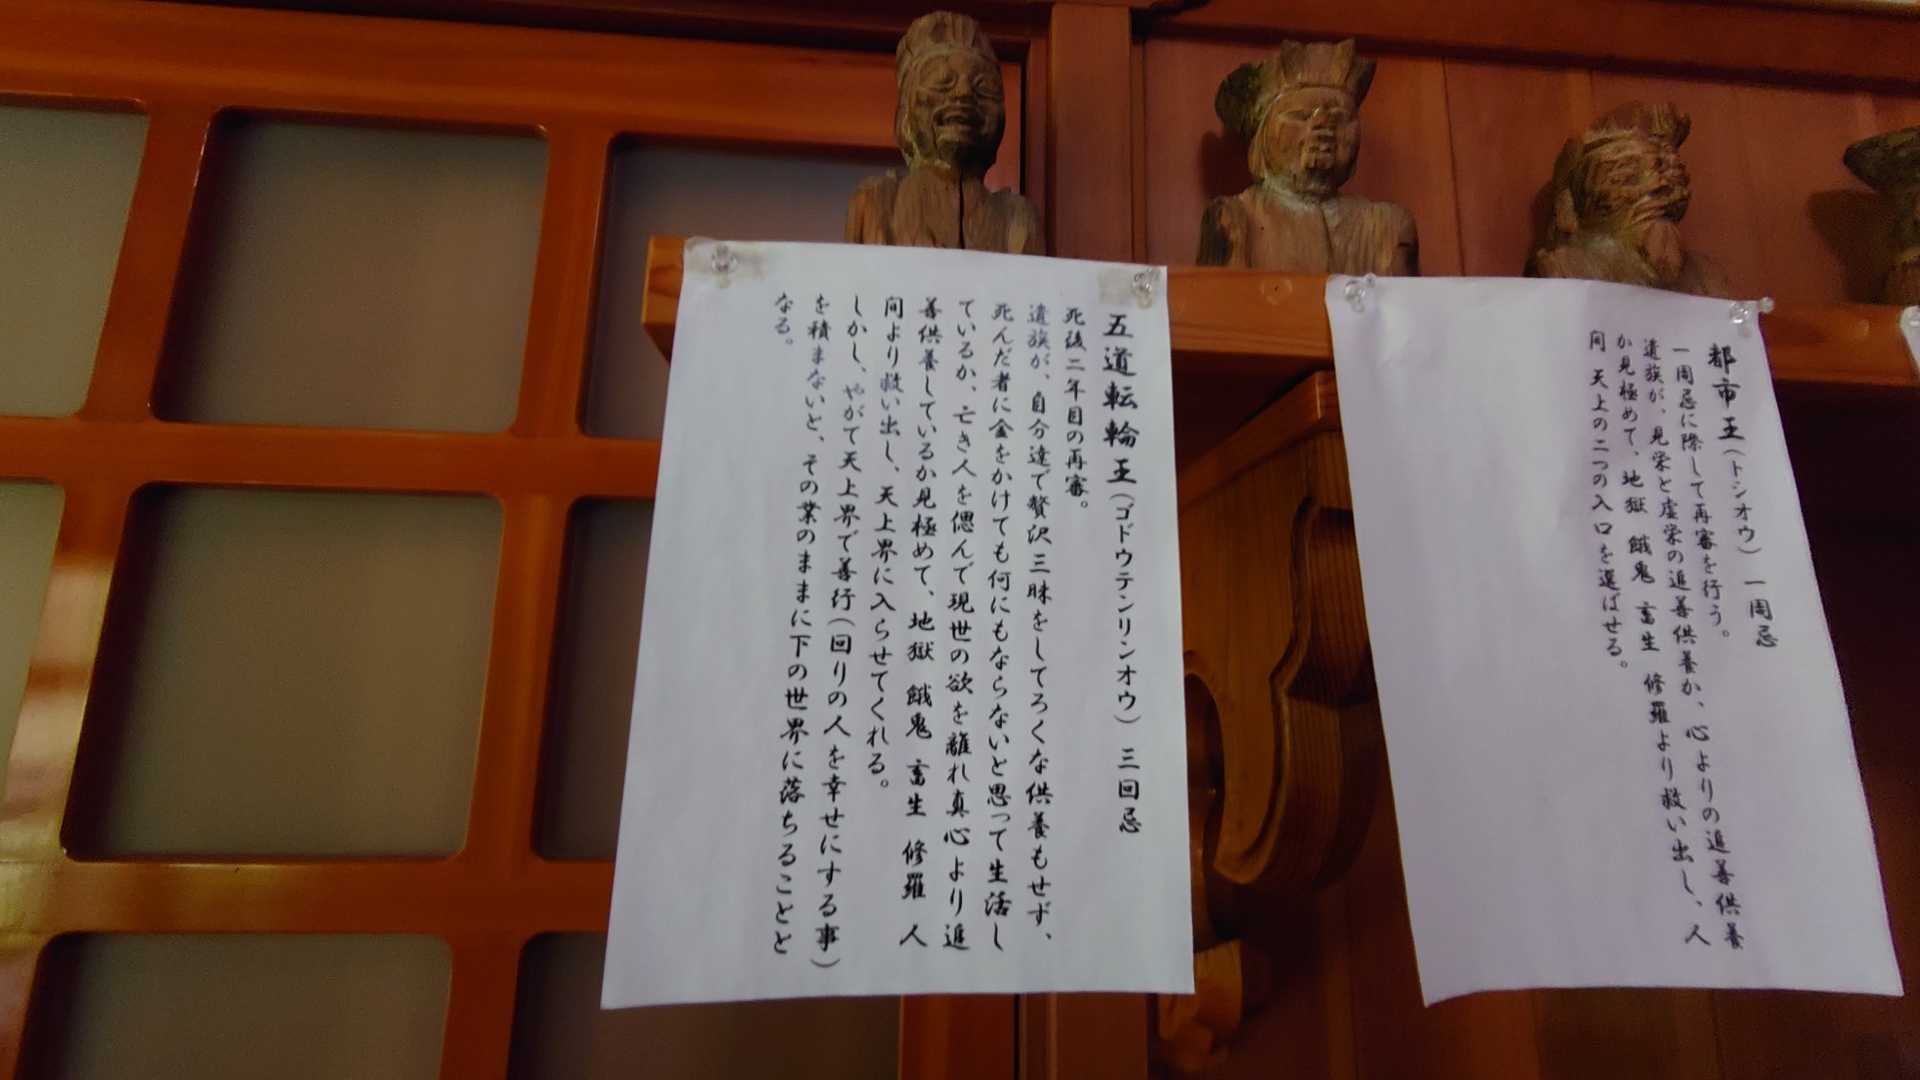 都市王(トシオウ) 一周忌
一周忌に際して再審を行う。
遺族が、見栄と虚栄の追善供養か、心よりの追善供養
か見極めて、地獄 餓鬼 畜生 修羅より救い出し、人
間 天上の二つの入口を選ばせる。
五道転輪王(ゴドウテンリンオウ) 三回忌
死後二年目の再審。
遺族が、自分達で贅沢三昧をしてろくな供養もせず、
死んだ者に金をかけても何にもならないと思って生活し
ているか、亡き人を偲んで現世の欲を離れ真心より追
善供養しているか見極めて、地獄 餓鬼 畜生 修羅 人
間より救い出し、天上界に入らせてくれる。
しかし、やがて天上界で善行(回りの人を幸せにする事)
を積まないと、その業のままに下の世界に落ちることと
なる。